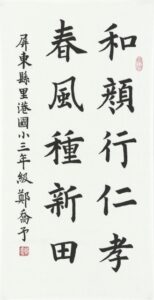 和顏行仁孝
春風種新田
屏東縣里港國小三年級鄭喬予